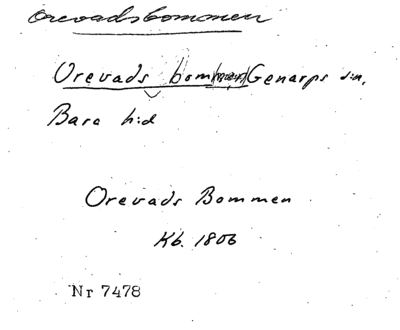 Orevadsbommen
Orevads bommen Genarps sn,
Bara hd
Orevads Bommen
Kb. 1806
Nr 7478